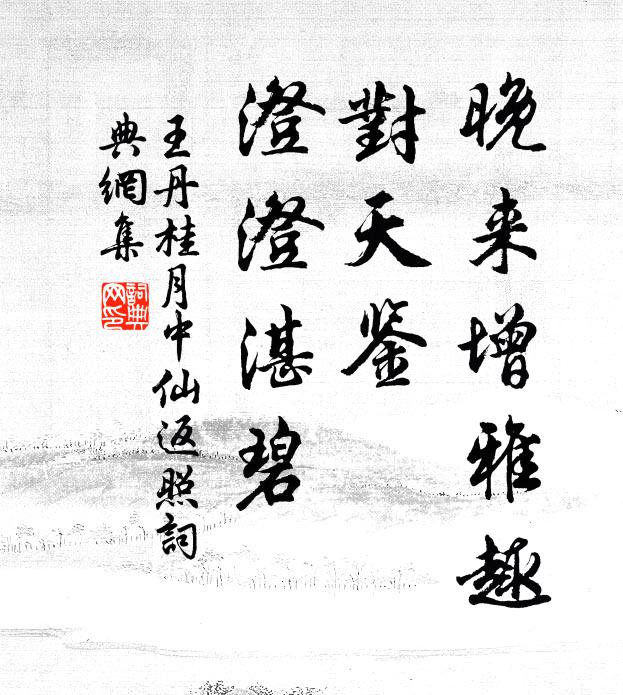 晚来增雅趣
對天鉴
澄澄湛碧
王丹桂月中仙返照詞
典網集
詞典网印